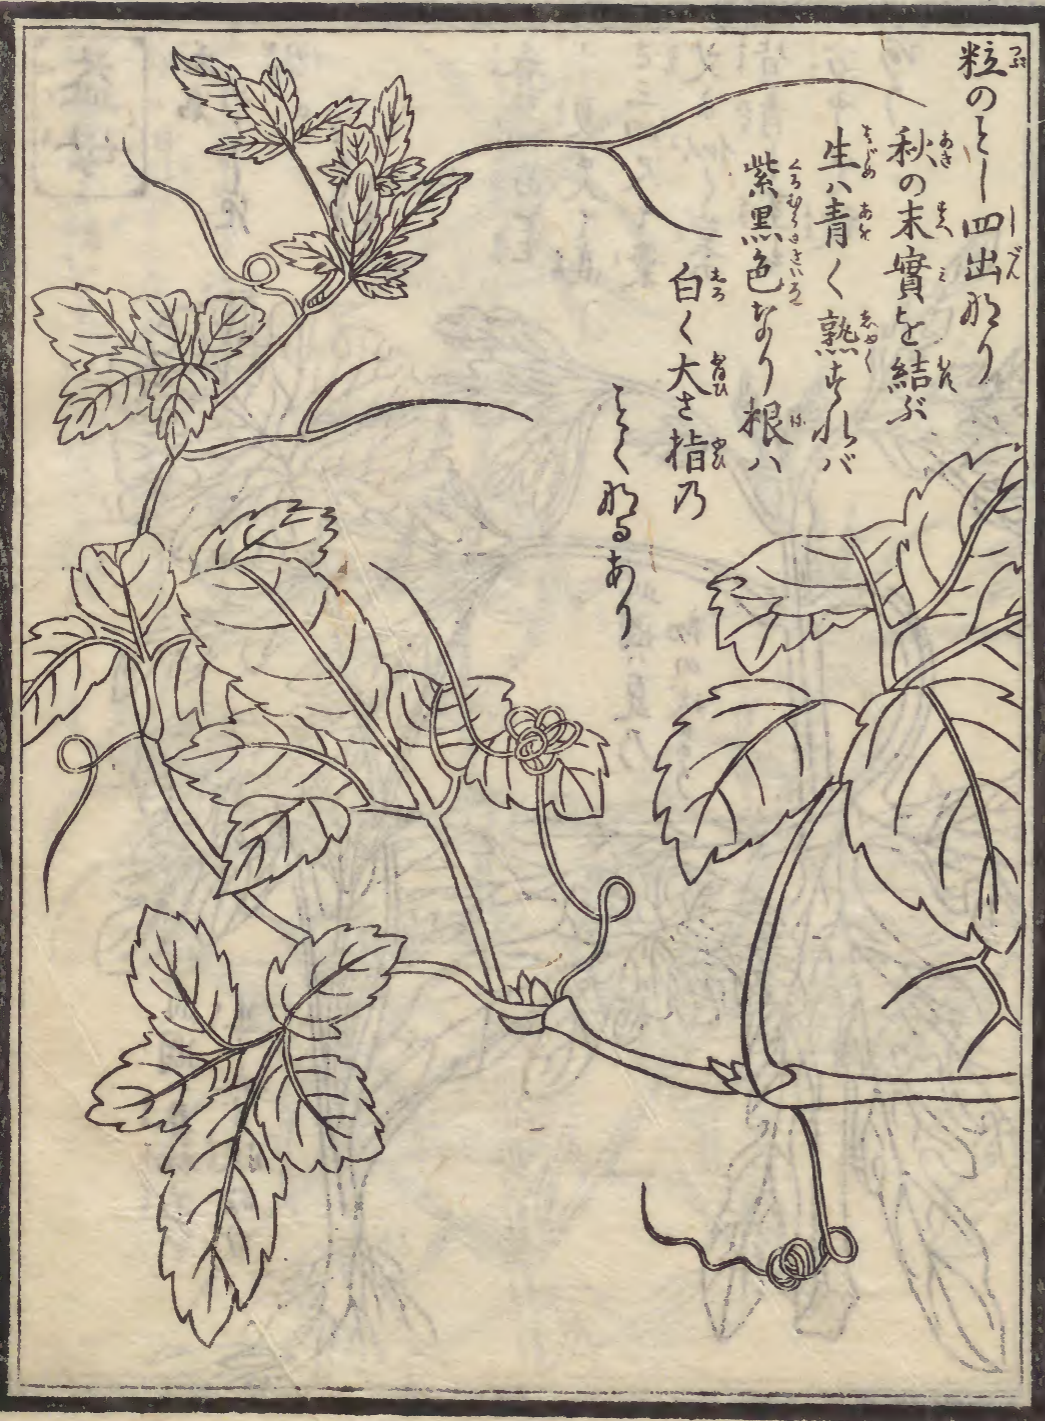 粒のことし四出なり
秋の末實を結ぶ
生ハ青く熟すれバ
紫黒色なり根ハ
白く大さ指乃
ことくなるあり